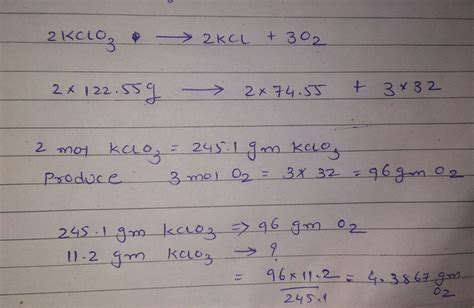 2KClO₃ → 2KCl + 3O₂
2 × 122.55g → 2 × 74.55 + 3 × 32
2 mol KClO₃ = 245.1 gm KClO₃
Produce 3 mol O₂ = 3 × 32 = 96 gm O₂
245.1 gm KClO₃ ⇒ 96 gm O₂
11.2 gm KClO₃ → ?
= 96 × 11.2 / 245.1 = 4.3867 gm O₂